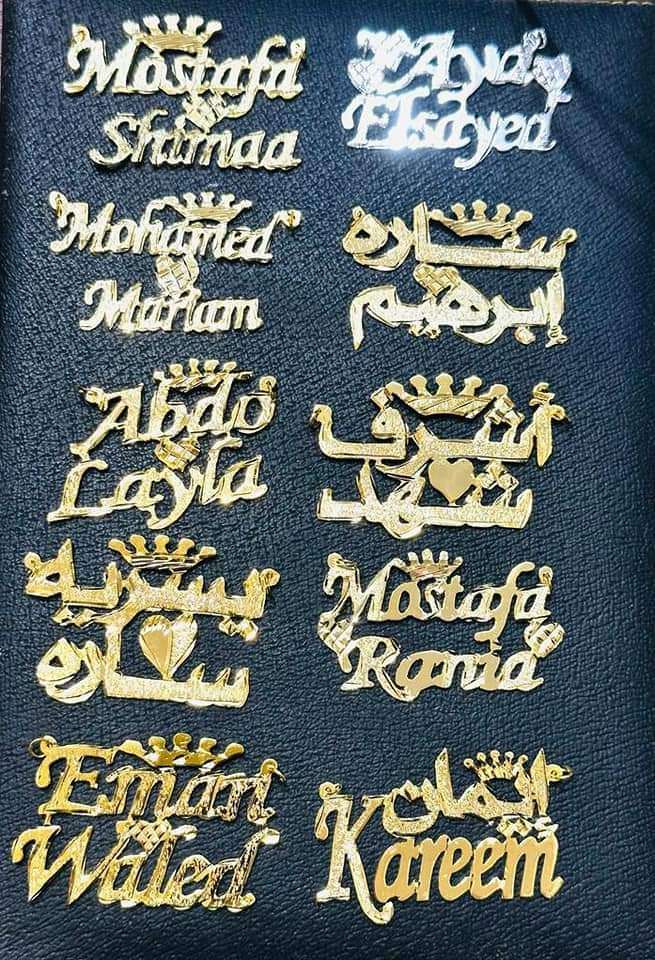 Mostafa
Shimaa
Aya
Elsayed
Mohamed
Mariam
ساره
ابرهيم
Abdo
Layla
أشرف
شهد
يسريه
ساره
Mostafa
Rania
Eman
Waled
إيمان
Kareem